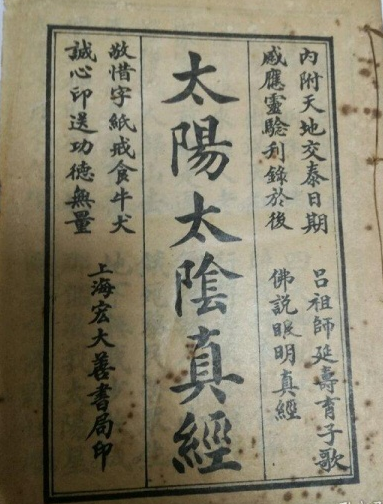 內附天地交泰日期
感應靈驗刋錄於後
呂祖師延壽育子歌
佛説眼明真經
太陽太陰真經
敬惜字紙戒食牛犬
誠心印送功德無量
上海宏大善書局印